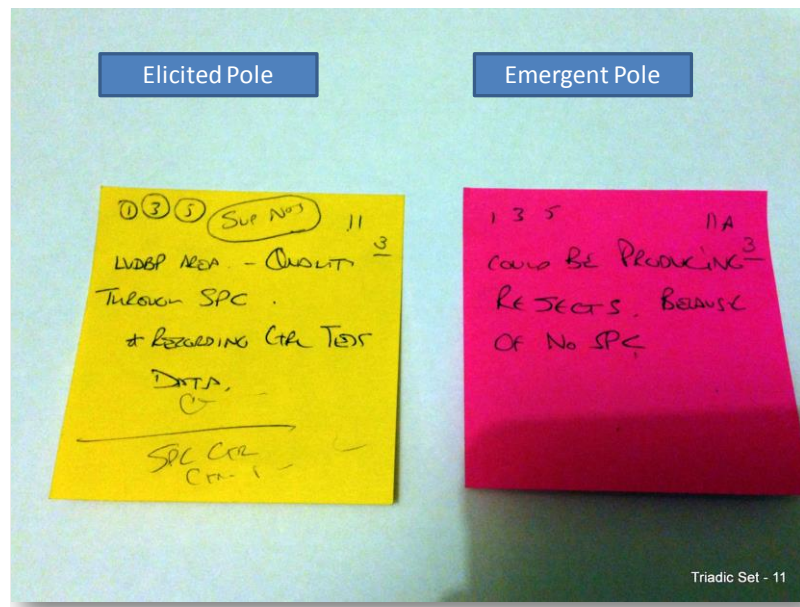 Elicited Pole
Emergent Pole
① ③ ⑤ Sup Nos 11
3
LVDBP AREA - QUALITY
THROUGH SPC.
* RECORDING CTR TEST
DATA.
SPC CTR
1 3 5 11A
3
COULD BE PRODUCING
REJECTS. BECAUSE
OF NO SPC
Triadic Set - 11